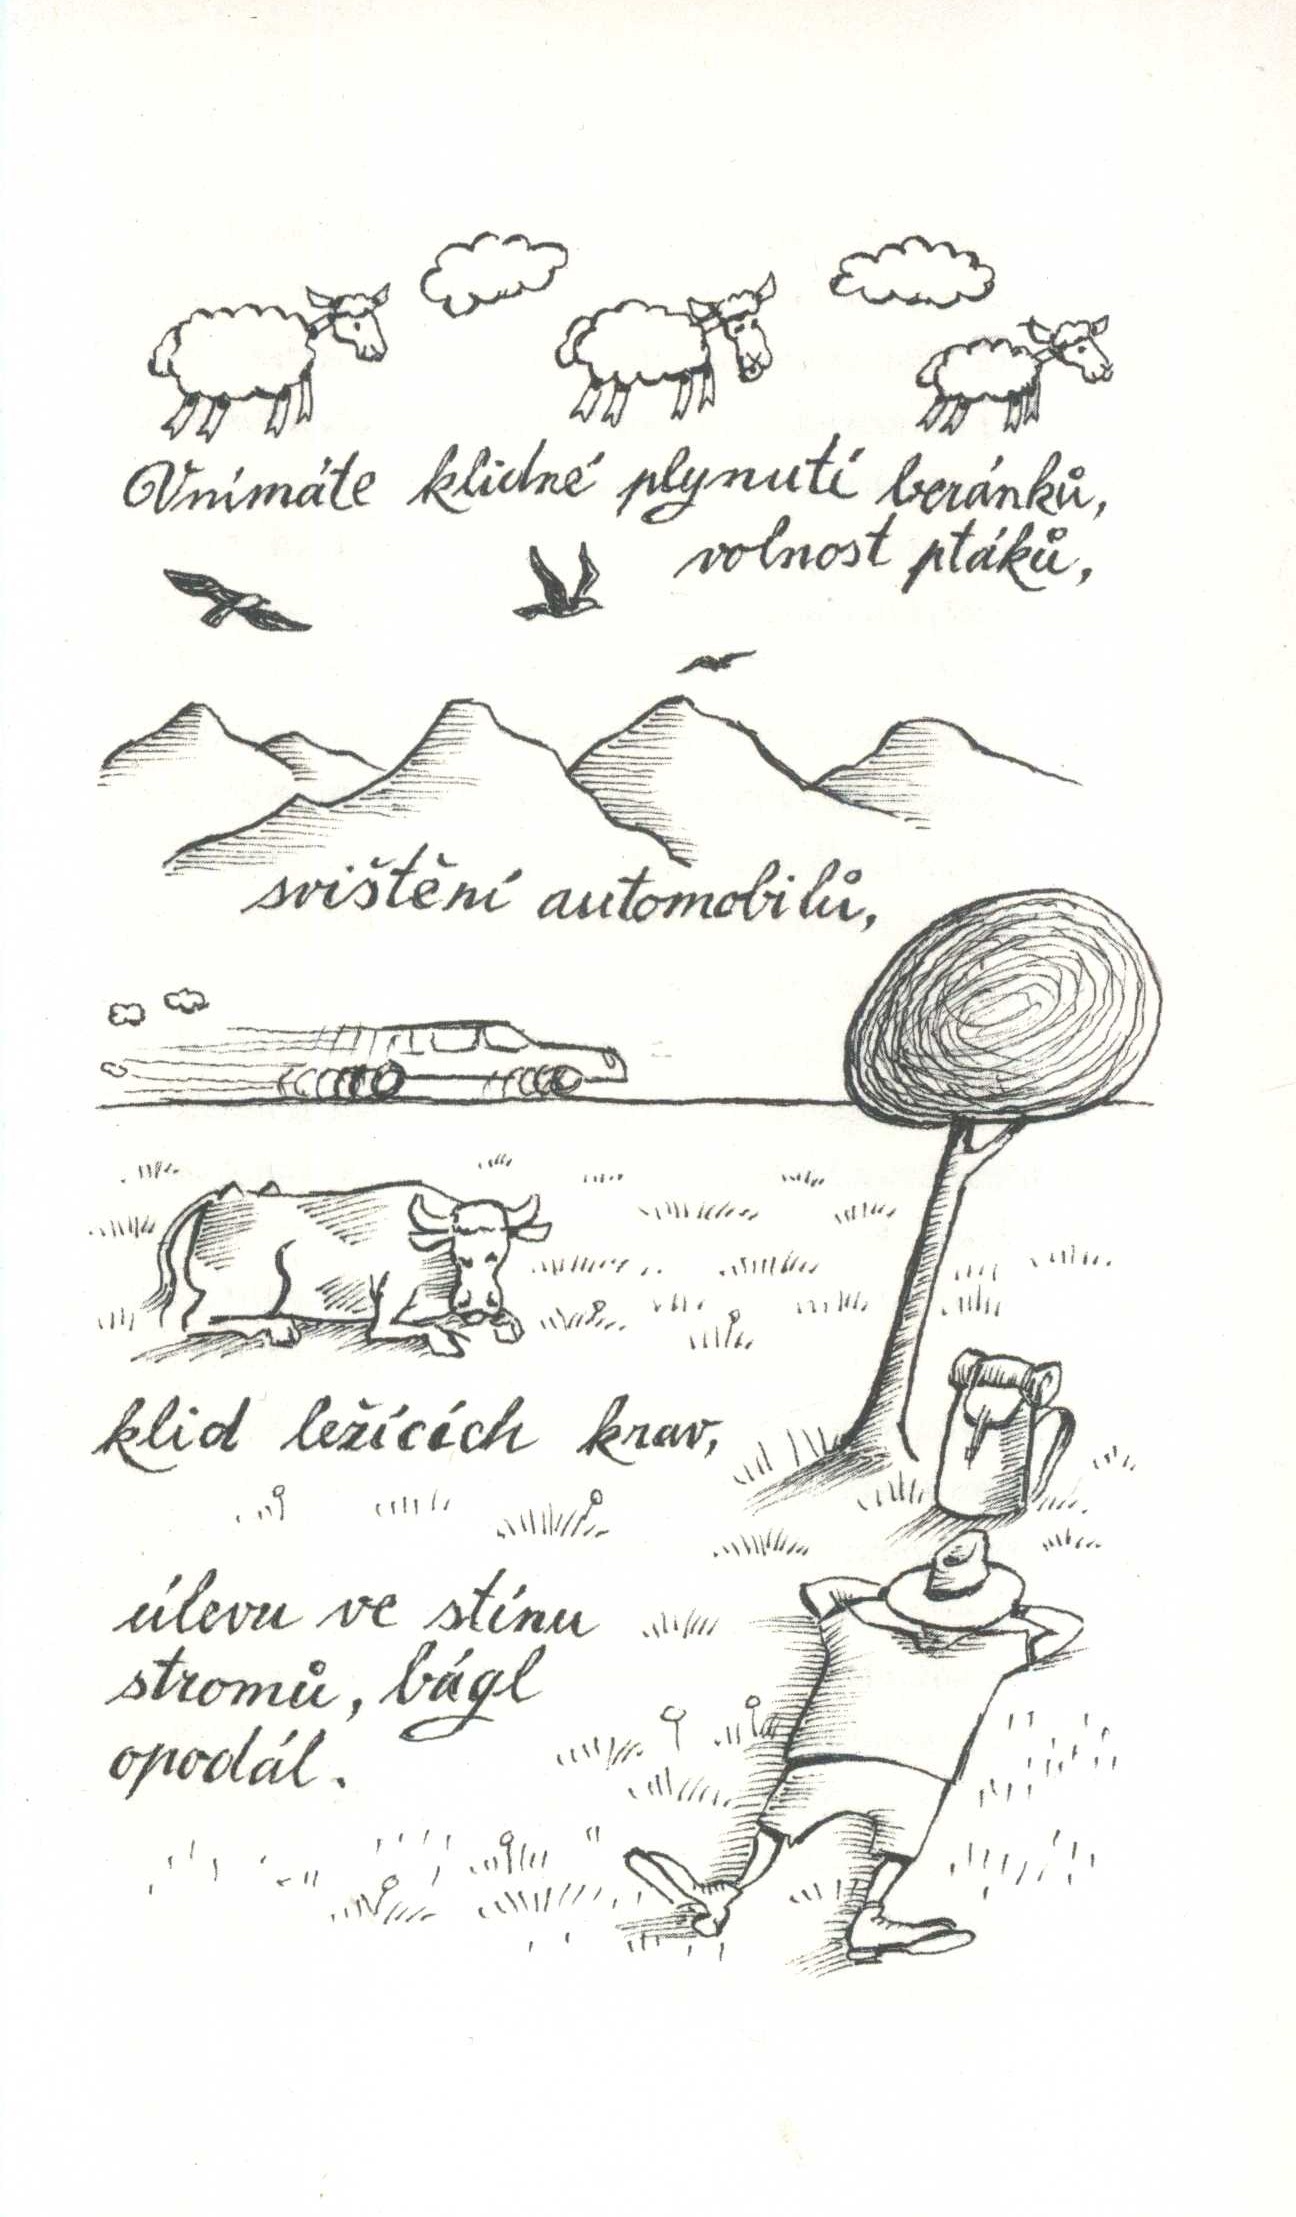 Vnímáte klidné plynutí beránků,
volnost ptáků,
svištění automobilů,
klid ležících krav,
úlevu ve stínu
stromů, bágl
opodál.